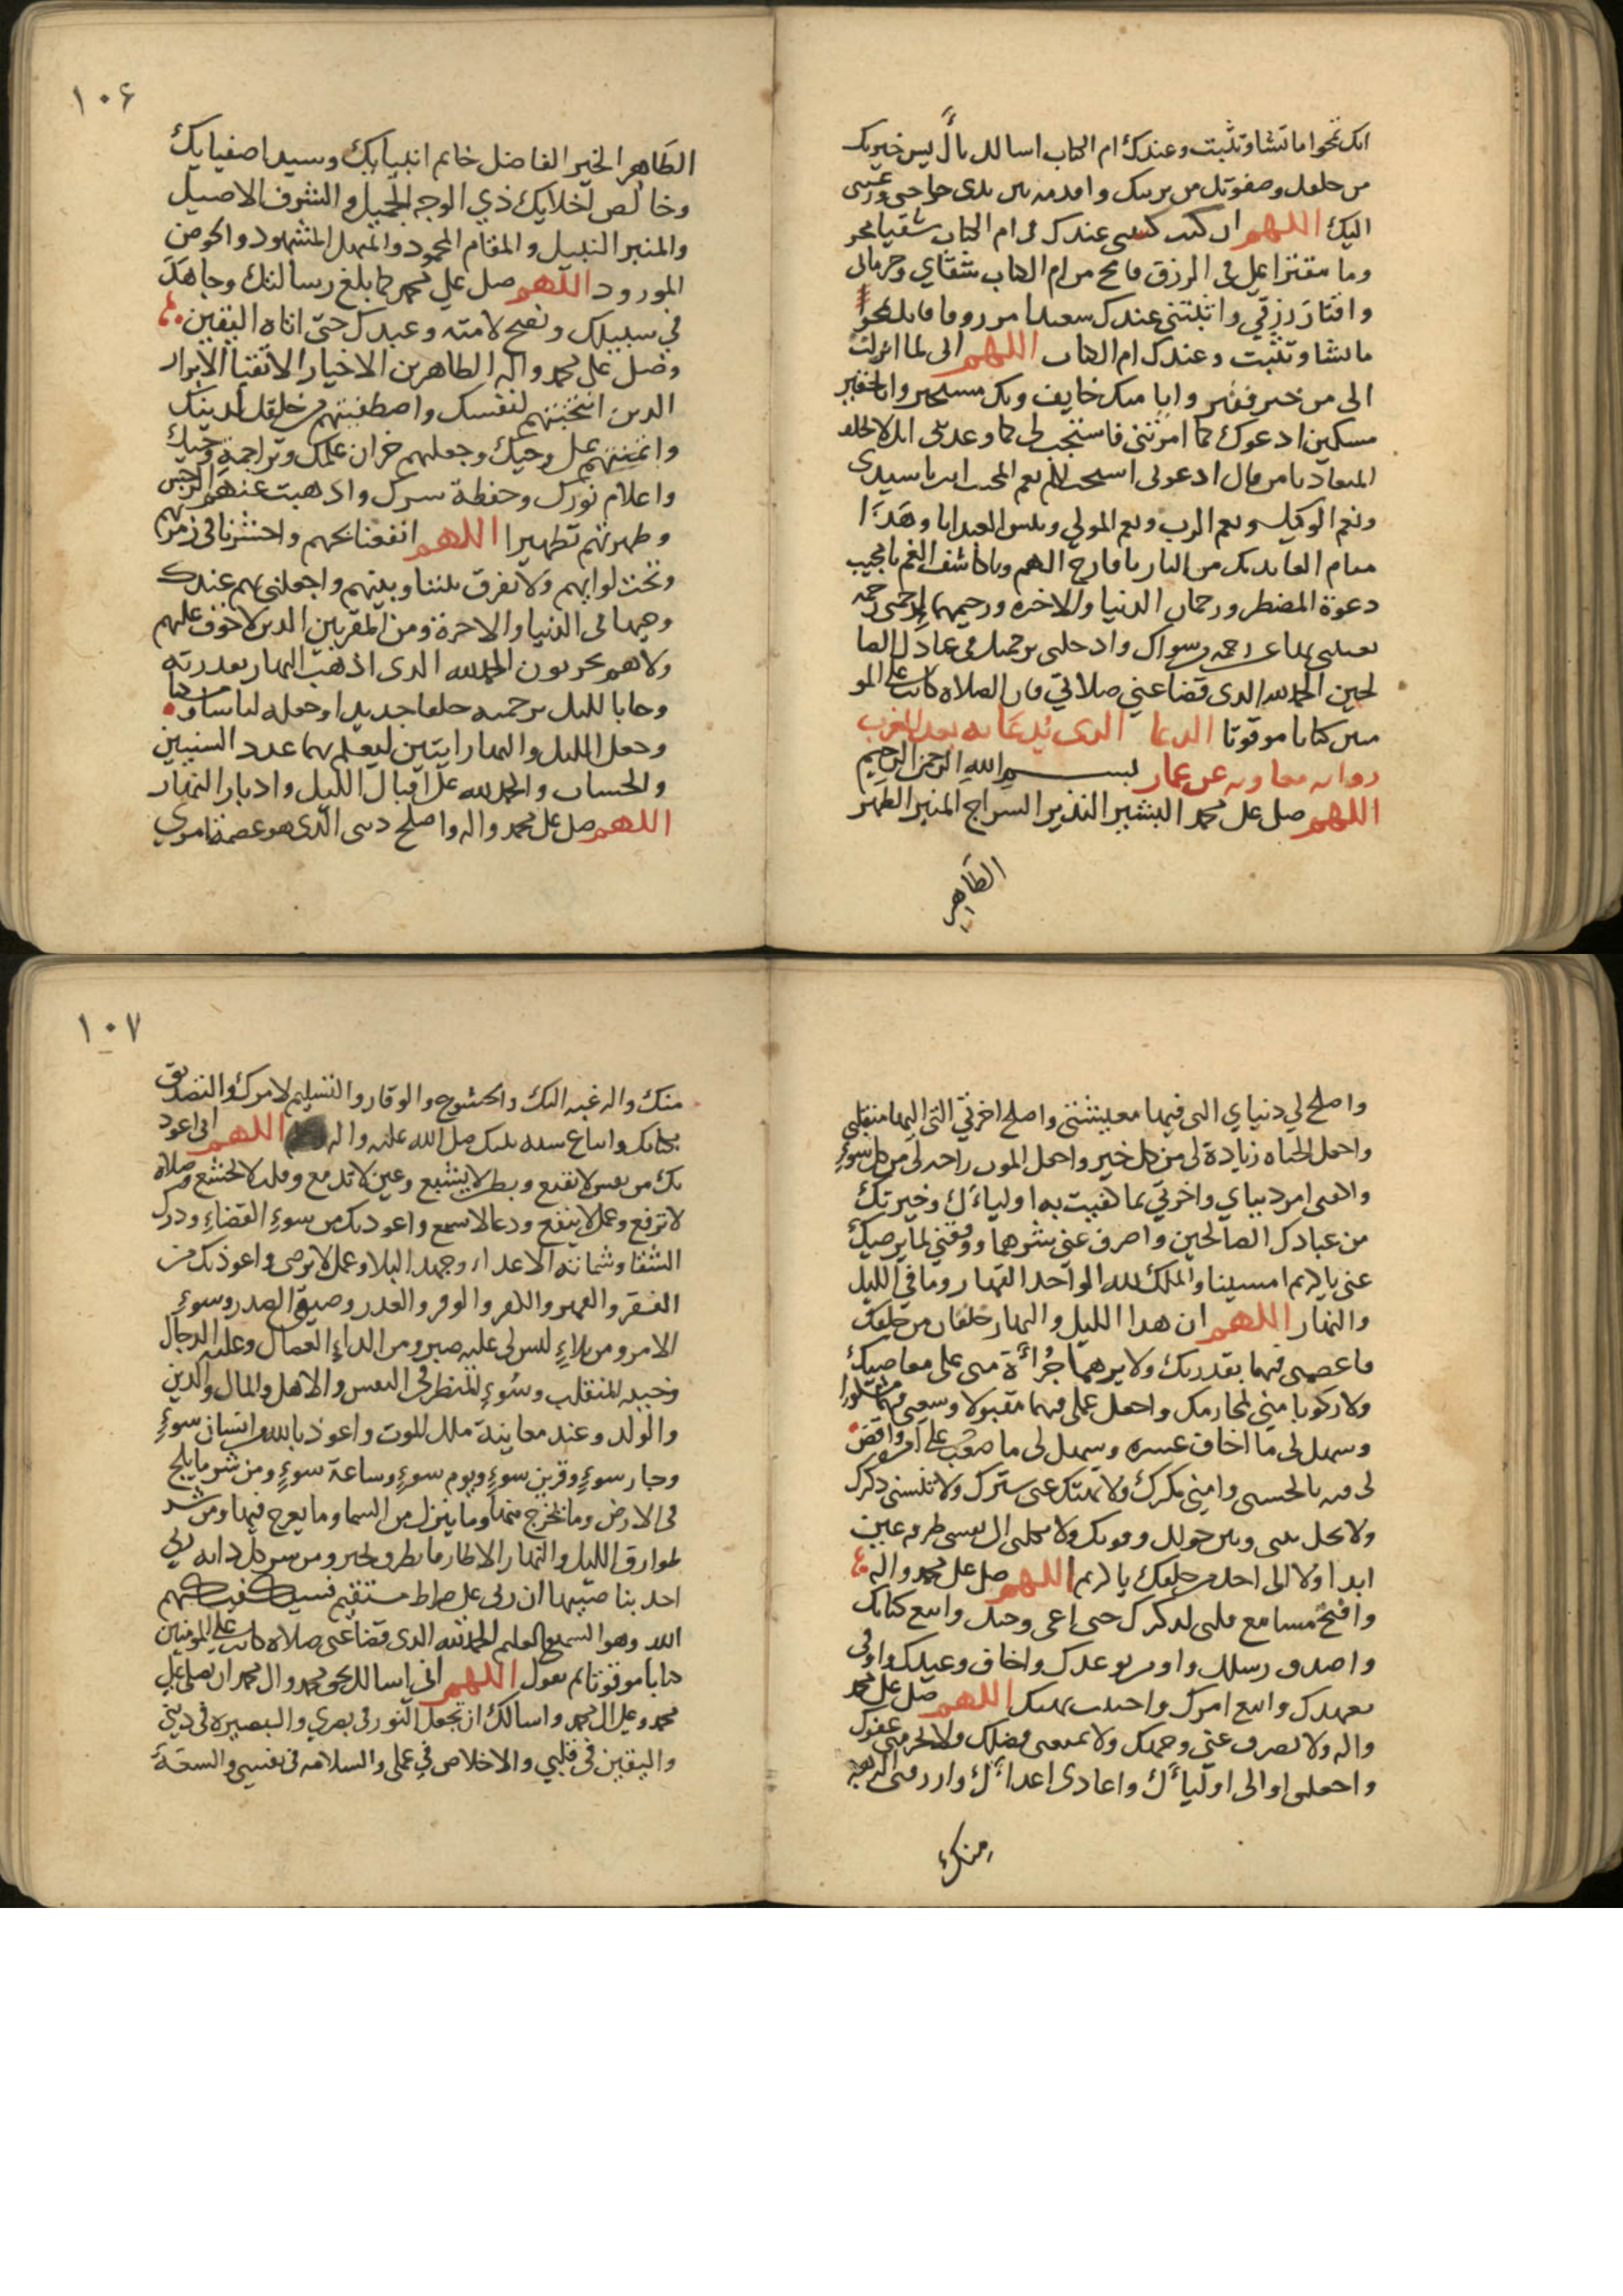 انك تمحوا ما تشا وتثبت وعندك ام الكتاب اسالك يا ليس خيرتك
من خلقك وصفوتك من بريتك واقدمه بين يدى حوايجى ورغبتى
اليك اللهم ان كنت كتبتنى عندك فى ام الكتاب شقيا محر
وما مقترا على فى الرزق فامح من ام الكتاب شقاي وحرمانى
واقتار رزقي واثبتني عندك سعيدا مرزوقا فانك تمحوا
ما تشا وتثبت وعندك ام الكتاب اللهم انى لما انزلت
الى من خير فقير وانا منك خايف وبك مستجير وانا حقير
مسكين ادعوك كما امرتنى فاستجب لى كما وعدتنى انك لا تخلف
الميعاد يا من قال ادعونى استجب لكم نعم المجيب انت يا سيدى
ونعم الوكيل ونعم الرب ونعم المولي وبئس العبد انا وهذا
مقام العايذ بك من النار يا فارج الهم ويا كاشف الغم يا مجيب
دعوة المضطر ورحمان الدنيا والاخره ورحيمهما ارحمنى رحمة
تغنينى بها عن رحمة من سواك وادخلنى برحمتك فى عبادك الصا
لحين الحمد لله الذى قضا عني صلاتي فان الصلاة كانت على المو
منين كتابا موقوتا الدعا الذى يُدعَا به بعد المغرب
رواية معاوية عن عمار بسم الله الرحمن الرحيم
اللهم صل على محمد البشير النذير السراج المنير الطهر
الطَاهِرِ
١٠۶
الطَاهِر الخير الفاضل خاتم انبيايك وسيد اصفيايك
وخالص اخلايك ذي الوجه الجميل والشرف الاصيل
والمنبر النبيل والمقام المحمود والمنهل المشهود والحوض
المورود اللهم صل علي محمد كما بلغ رسالتك وجاهدَ
في سبيلك ونصح لامته وعبدك حتى اتاه اليقين
وصل على محمد واله الطاهرين الاخيار الاتقيا الابرار
الذين انتجبتهم لنفسك واصطفيتهم من خلقك لدينك
وائتمنتهم على وحيك وجعلتهم خزان علمك وتراجمة وحيك
واعلام نورك وحفظة سرك واذهبت عنهم الرجس
وطهرتهم تطهيرا اللهم انفعنا بحبهم واحشرنا فى زمرتهم
وتحت لوايهم ولا تفرق بيننا وبينهم واجعلنى بهم عندك
وجيها فى الدنيا والاخرة ومن المقربين الذين لا خوف عليهم
ولا هم يحزنون الحمد لله الذى اذهب النهار بقدرته
وجا بالليل برحمته خلقا جديدا وجعله لباسا و
وجعل الليل والنهار ايتين ليعلم بهما عدد السنين
والحساب والحمد لله على اقبال الليل وادبار النهار
اللهم صل على محمد واله واصلح دينى الذى هو عصمة امري
واصلح لي دنياي التى فيها معيشتي واصلح اخرتي التى اليها منقلبى
واجعل الحياه زيادة لى من كل خير واجعل الموت راحة لى من كل سوء
واكفنى امر دنياي واخرتي بما كفيت به اولياءك وخيرتك
من عبادك الصالحين واصرف عني شرهما ووفقني لما يرضيك
عنى يا كريم امسينا والملك لله الواحد القهار وما في الليل
والنهار اللهم ان هذا الليل والنهار خلقان من خلقك
فاعصمنى فيهما بقدرتك ولا يرهما جُراءَة منى على معاصيك
ولا ركوبا مني لمحارمك واجعل عملى فيهما مقبولا وسعيى فيهما مشكورا
وسهل لى ما اخاف عسره وسهل لى ما صعب على امره واقض
لى فيه بالحسنى وامني مكرك ولا تهتك عنى سترك ولا تنسنى ذكرك
ولا تحل بينى وبين حولك وقوتك ولا تكلنى الى نفسى طرفه عين
ابدا ولا الى احد من خلقك يا كريم اللهم صل على محمد واله
وافتح مسامع قلبى لذكرك حتى اعى وحيك واتبع كتابك
واصدق رسلك واومن بوعدك واخاف وعيدك واوفى
بعهدك واتبع امرك واجتنب نهيك اللهم صل على محمد
واله ولا تصرف عني وجهك ولا تمنعنى فضلك ولا تحرمنى عفوك
واجعلنى اوالى اولياءَك واعادى اعداءَك وارزقنى الرهبة
مِنكَ
١٠٧
منك والرغبه اليك والخشوع والوقار والتسليم لامرك والتصديق
بكتابك واتباع سنه نبيك صل الله عليه واله اللهم انى اعوذ
بك من نفس لا تقنع وبطن لا يشبع وعين لا تدمع وقلب لا يخشع وصلاة
لا ترفع وعمل لا ينفع ودعا لا يسمع واعوذ بك من سوءِ القضاءِ ودرك
الشقا وشماتة الاعداء وجهد البلا وعمل لا يرضى واعوذ بك من
الفقر والقهر والكفر والوقر والغدر وضيق الصدر وسوءِ
الامر ومن بلاءٍ ليس لى عليه صبر ومن الداءِ العضال وغلبة الرجال
وخيبه المنقلب وسُوءِ المنظر في النفس والاهل والمال والدين
والولد وعند معاينة ملك الموت واعوذ بالله من انسان سوءٍ
وجار سوءٍ وقرين سوءٍ ويوم سوءٍ وساعة سوءٍ ومن شر ما يلج
فى الارض وما يخرج منها وما ينزل من السما وما يعرج فيها ومن شر
طوارق الليل والنهار الا طارقا يطرق بخير ومن شر كل دابه ربي
اخذ بناصيتها ان ربى على صراط مستقيم فسيكفيكهم
الله وهو السميع العليم الحمد لله الذى قضا عنى صلاة كانت على المومنين
كتابا موقوتا ثم تقول اللهم انى اسالك بحق محمد وال محمد ان تصلى على
محمد وعلى ال محمد واسالك ان تجعل النور فى بصري والبصيره فى ديني
واليقين فى قلبي والاخلاص في عملى والسلامه فى نفسى والسعَة